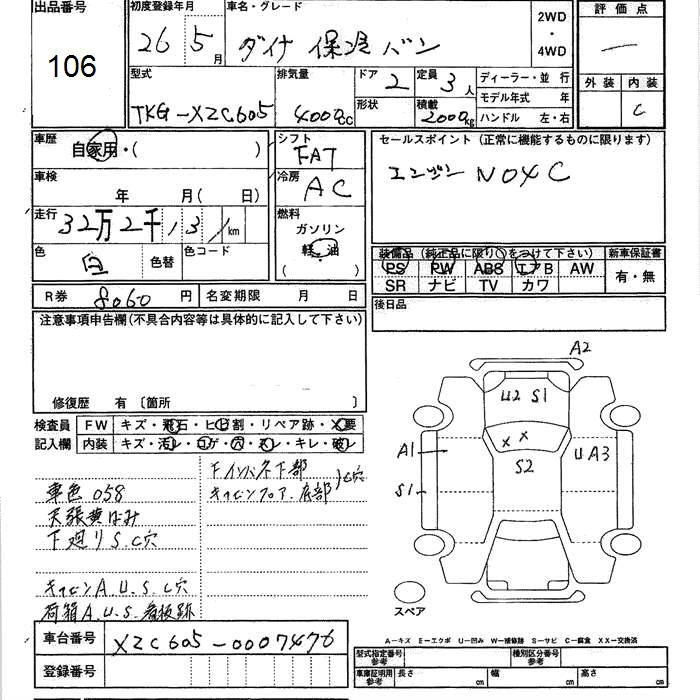 出品番号
106
初度登録年月
26 5月
車名・グレード
ダイナ 保冷 バン
2WD
・
4WD
評価点
—
外装 内装
C
型式
TKG-XZC605
排気量
4000cc
ドア 2
形状
定員 3人
積載 2000kg
ディーラー・並 行
モデル年式 年
ハンドル 左・右
車歴
自家用・( )
車検
年 月( 日)
走行
32万2千,131km
色
白 色替
色コード
シフト
FAT
冷房
AC
燃料
ガソリン
軽・油
( )
セールスポイント (正常に機能するものに限ります)
エンジン NOX C
装備品 (純正品に限り○をつけて下さい)
PS PW ABS エアB AW
SR ナビ TV カワ
新車保証書
有・無
R券 8060 円
名変期限 月 日
後日品
注意事項申告欄(不具合内容等は具体的に記入して下さい)
修復歴 有 〔箇所 〕
検査員 FW キズ・飛石・ヒビ割・リペア跡・X要
記入欄 内装 キズ・汚レ・コゲ・穴・スレ・キレ・破レ
車色 058
天張黄ばみ
下廻りS.C穴
キャビンA.U.S.C穴
荷箱A.U.S.看板跡
Fインパネ下部
キャビンフロア.底部 C穴
A2
U2 S1
A1
S1
S2
UA3
スペア
A-キズ E-エクボ U-凹み W-補修跡 S-サビ C-腐食 XX-交換済
車台番号 XZC605-0007476
登録番号
型式指定番号
参考
種別区分番号
参考
車庫証明用
参考
長さ cm 幅 cm 高さ cm